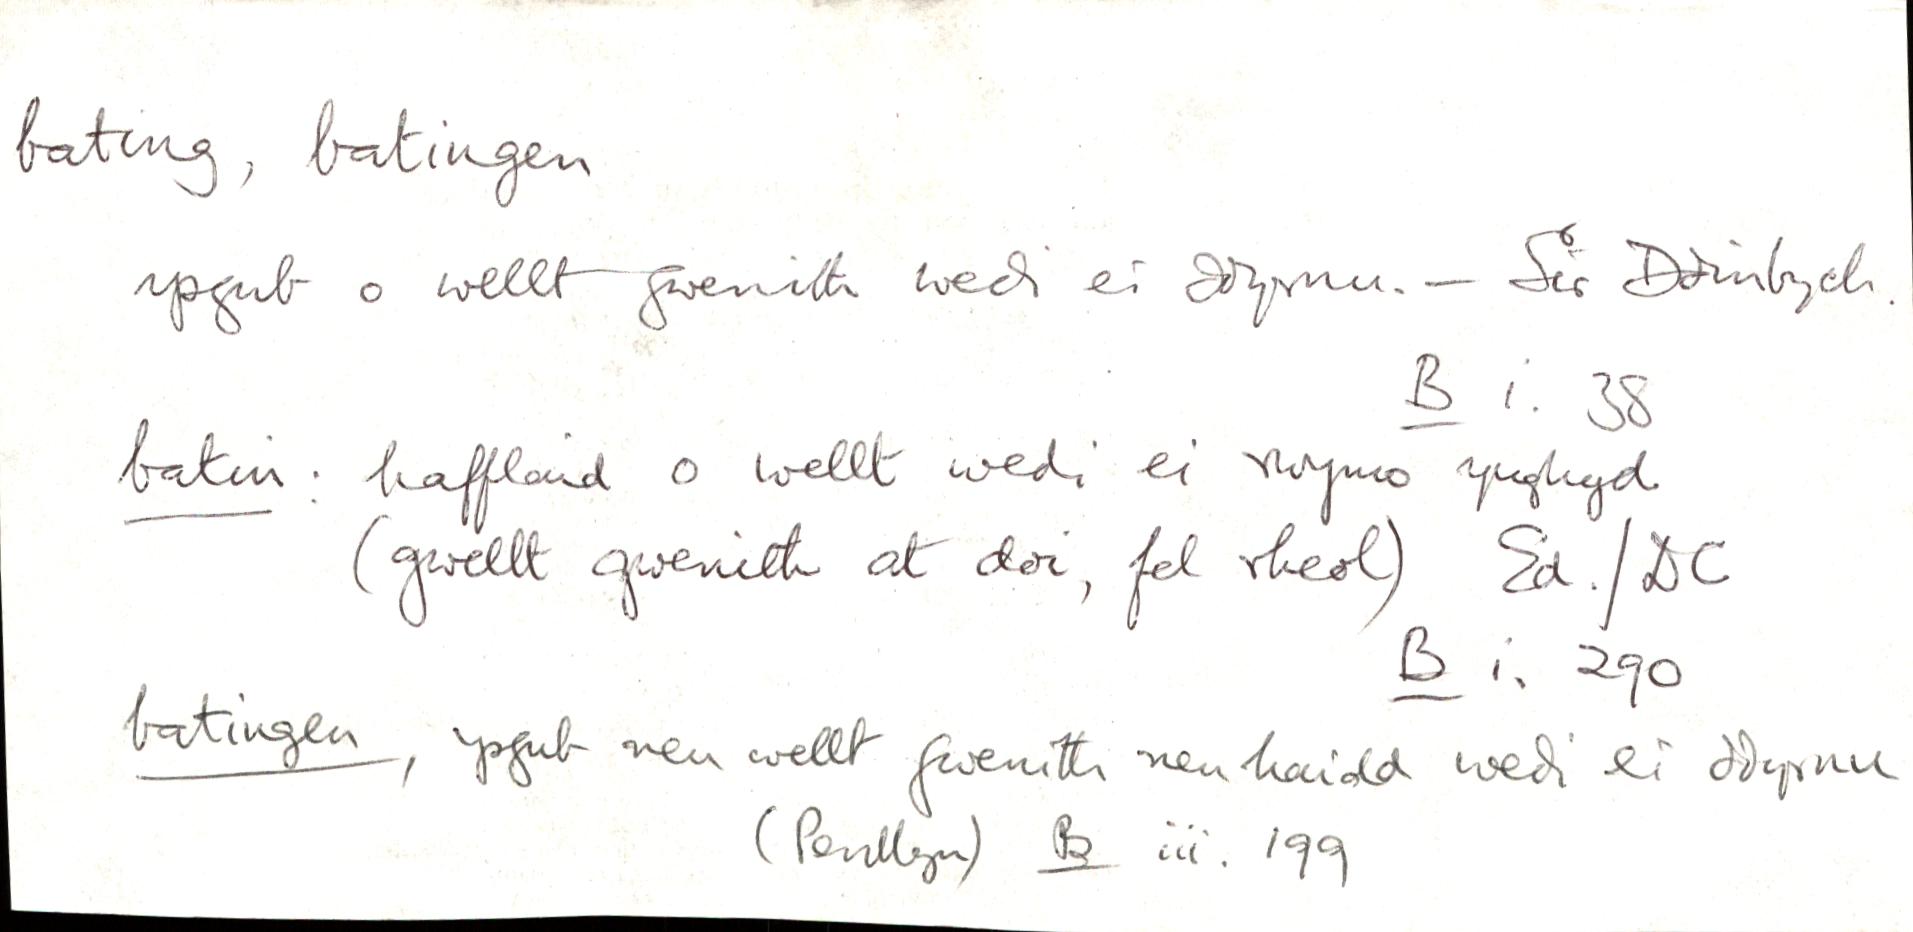 bating, batingen
ysgub o wellt gwenith wedi ei ddyrnu. — Sir Ddinbych.
B i. 38
batin: haffland o wellt wedi ei rwymo ynghyd
(gwellt gwenith at doi, fel rheol) Ed./DC
B i. 290
batingen, ysgub neu wellt gwenith neu haidd wedi ei ddyrnu
(Penllyn) B iii. 199